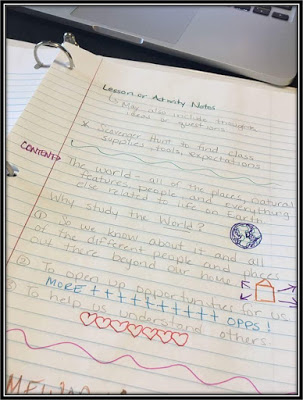 Lesson or Activity Notes
↳ May also include thoughts,
ideas or questions
* Scavenger Hunt to find class
supplies, tools, expectations
CONTENT?
The world - all of the places, natural
features, people and everything
else related to life on Earth.
Why study the World?
① So we know about it and all
of the different people and places
out there beyond our home
② To open up opportunities for us
MORE + + + + + + + + + OPPS!
③ To help us understand others.